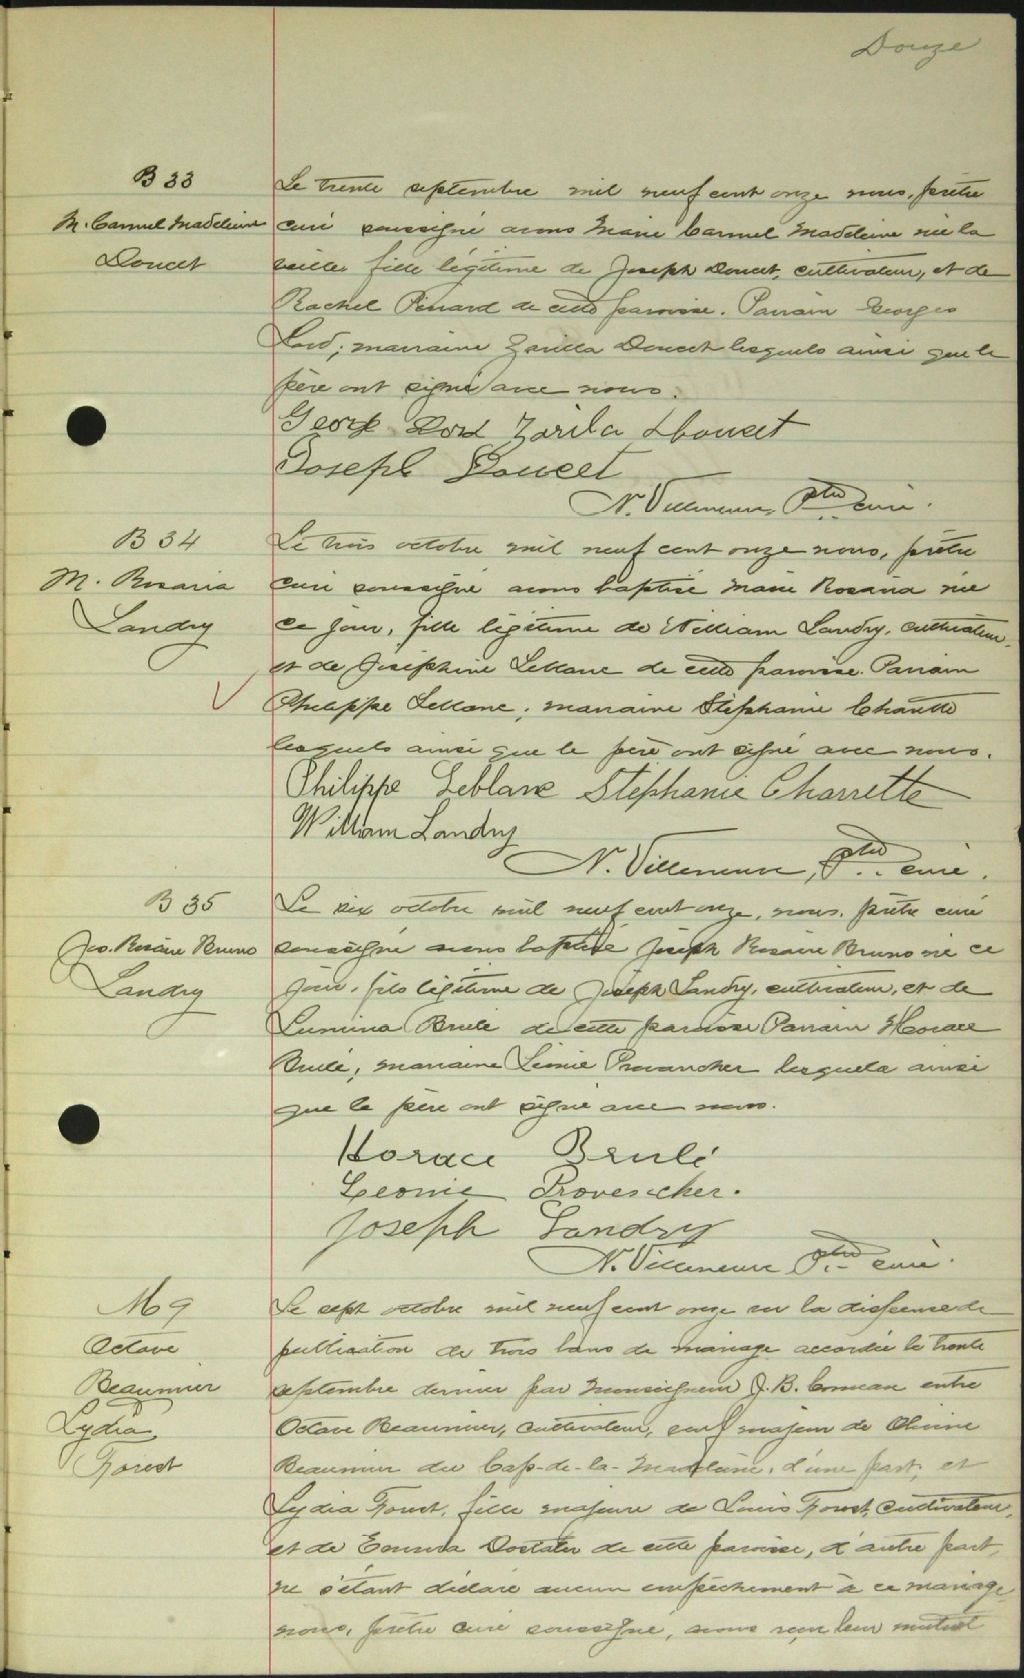 Douze
B 33
M. Carmel Madeleine
Doucet
Le trente septembre mil neuf cent onze nous, prêtre
curé soussigné avons Marie Carmel Madeleine née la
veille fille légitime de Joseph Doucet, cultivateur, et de
Rachel Pinard de cette paroisse. Parrain Georges
Lord; marraine Zarilla Doucet lesquels ainsi que le
père ont signé avec nous.
George Lord Zarila Doucet
Joseph Doucet
N. Villeneuve, Ptre curé.
B 34
M. Rosaria
Landry
Le trois octobre mil neuf cent onze nous, prêtre
curé soussigné avons baptisé Marie Rosaria née
ce jour, fille légitime de William Landry, cultivateur,
et de Joséphine Leblanc de cette paroisse. Parrain
Philippe Leblanc; marraine Stéphanie Charette
lesquels ainsi que le père ont signé avec nous.
Philippe Leblanc Stéphanie Charrette
William Landry
N. Villeneuve, Ptre curé.
B 35
Jos. Rosaire Bruno
Landry
Le six octobre mil neuf cent onze, nous, prêtre curé
soussigné avons baptisé Joseph Rosaire Bruno né ce
jour, fils légitime de Joseph Landry, cultivateur, et de
Lumina Brulé de cette paroisse Parrain Horace
Brulé; marraine Léonie Provancher lesquels ainsi
que le père ont signé avec nous.
Horace Brulé
Leonie Provencher.
Joseph Landry
N. Villeneuve Ptre curé.
M 9
Octave
Beaumier
Lydia
Forest
Le sept octobre mil neuf cent onze vu la dispense de
publication de trois bans de mariage accordée le trente
septembre dernier par Monseigneur J. B. Comeau entre
Octave Beaumier, cultivateur, veuf majeur de Olivine
Beaumier du Cap-de-la-Madeleine, d'une part, et
Lydia Forest, fille majeure de Louis Forest, cultivateur,
et de Emma Dostaler de cette paroisse, d'autre part,
ne s'étant déclaré aucun empêchement à ce mariage
nous, prêtre curé soussigné, avons reçu leur mutuel